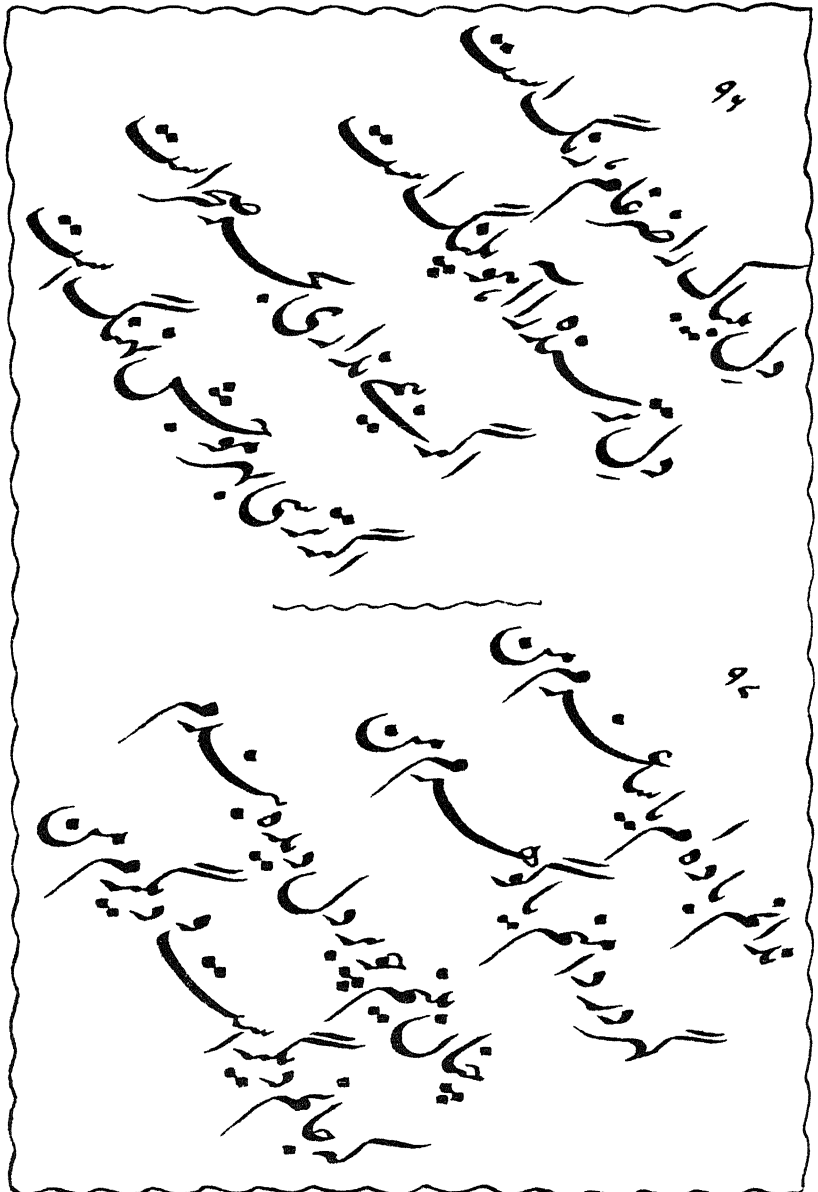 ۹۶
دلِ بیباک را ضرغام، رنگ است
دلِ ترسنده را آہو پلنگ است
اگر بیمی نداری بحر صحراست
اگر ترسی بہر موجش نہنگ است
۹۷
ندانم بادہ ام یا ساغرم من
گہر در دامنم یا گوہرم من
چنان بینم چو بر دل دیدہ بندم
کہ جانم دیگر است و دیگرم من